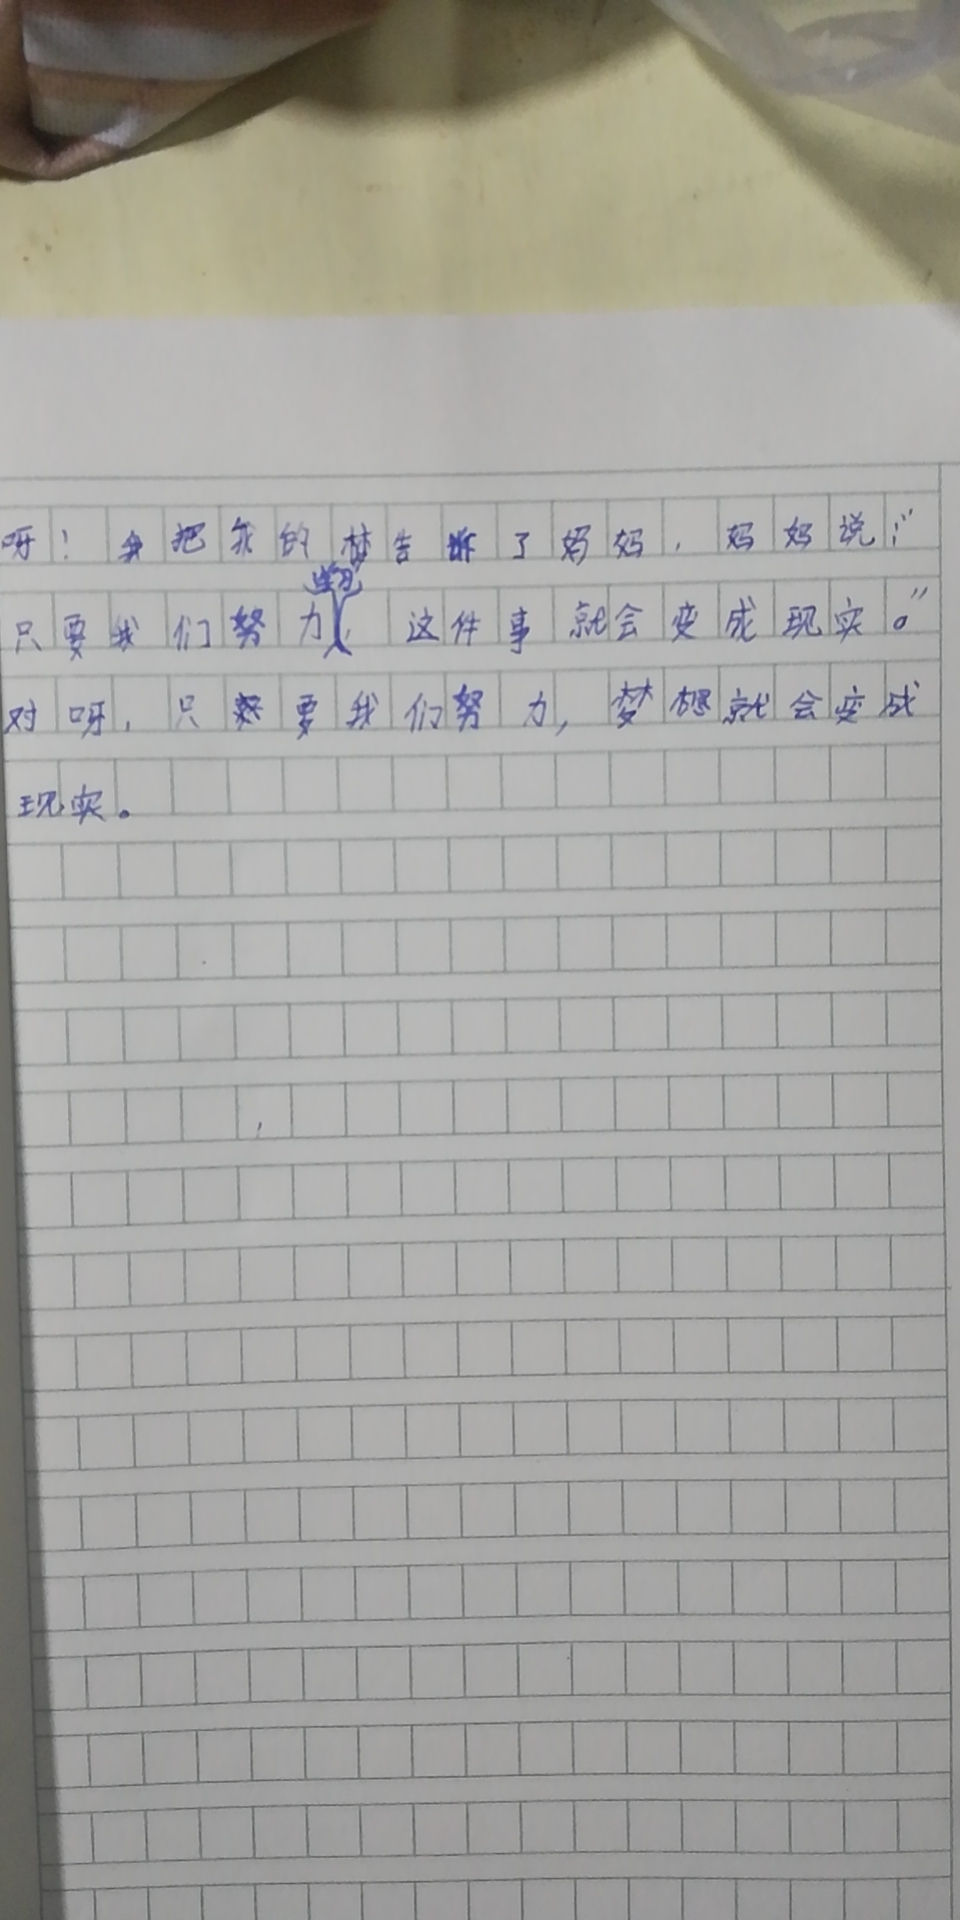 呀！我把我的梦告诉了妈妈，妈妈说：“
只要我们努力学习，这件事就会变成现实。”
对呀，只要我们努力，梦想就会变成
现实。